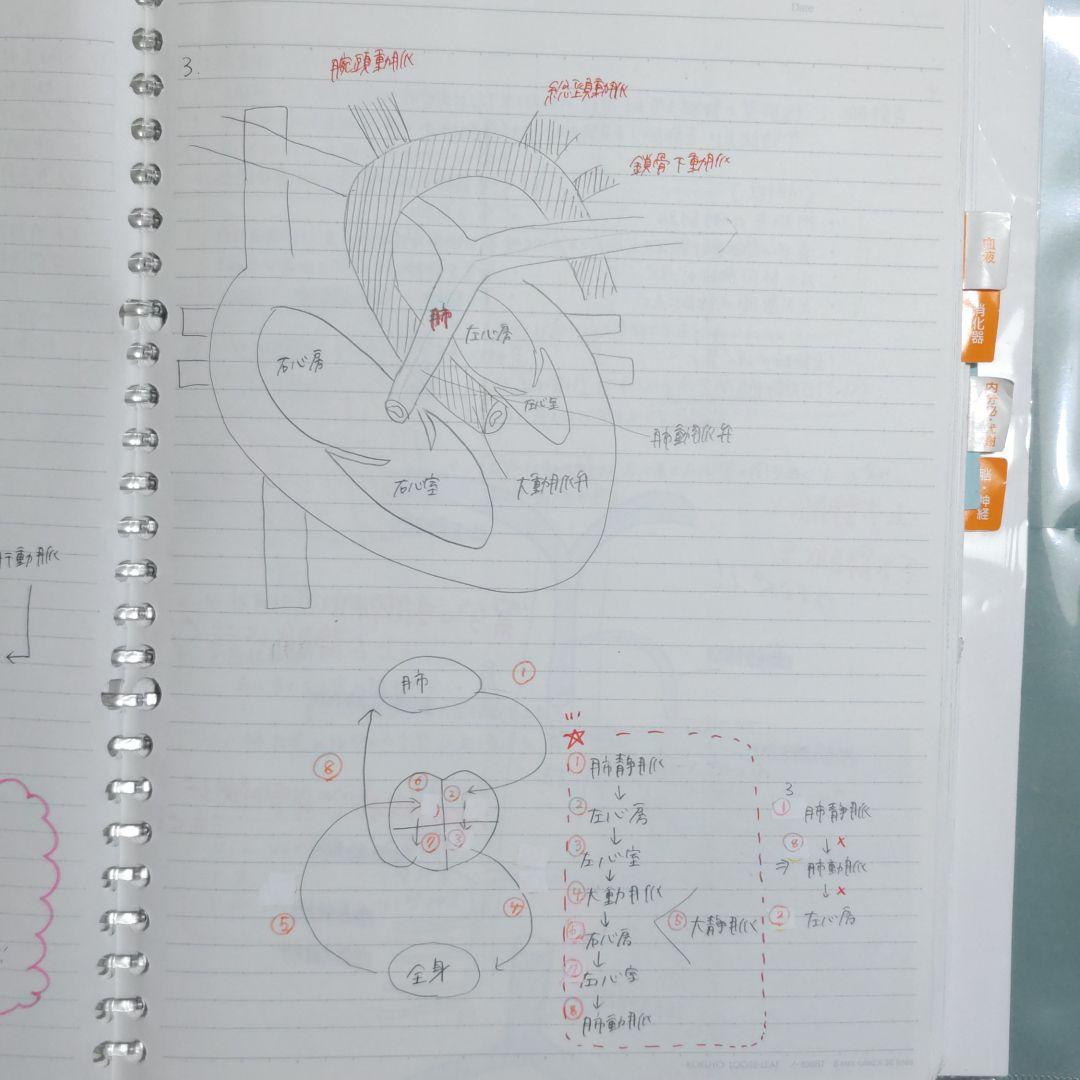 Date
3.
腕頭動脈
総頚動脈
鎖骨下動脈
肺
左心房
右心房
左心室
肺動脈弁
右心室
大動脈弁
血液
消化器
内分泌・代謝
脳・神経
行動脈
肺
①
⑧
⑥ ②
⑦ ③
⑤
④
全身
☆
①肺静脈
↓
②左心房
↓
③左心室
↓
④大動脈
↓
⑤大静脈
⑥右心房
↓
⑦左心室
↓
⑧肺動脈
3
①肺静脈
⑧ ↓×
⇒ 肺動脈
↓×
②左心房